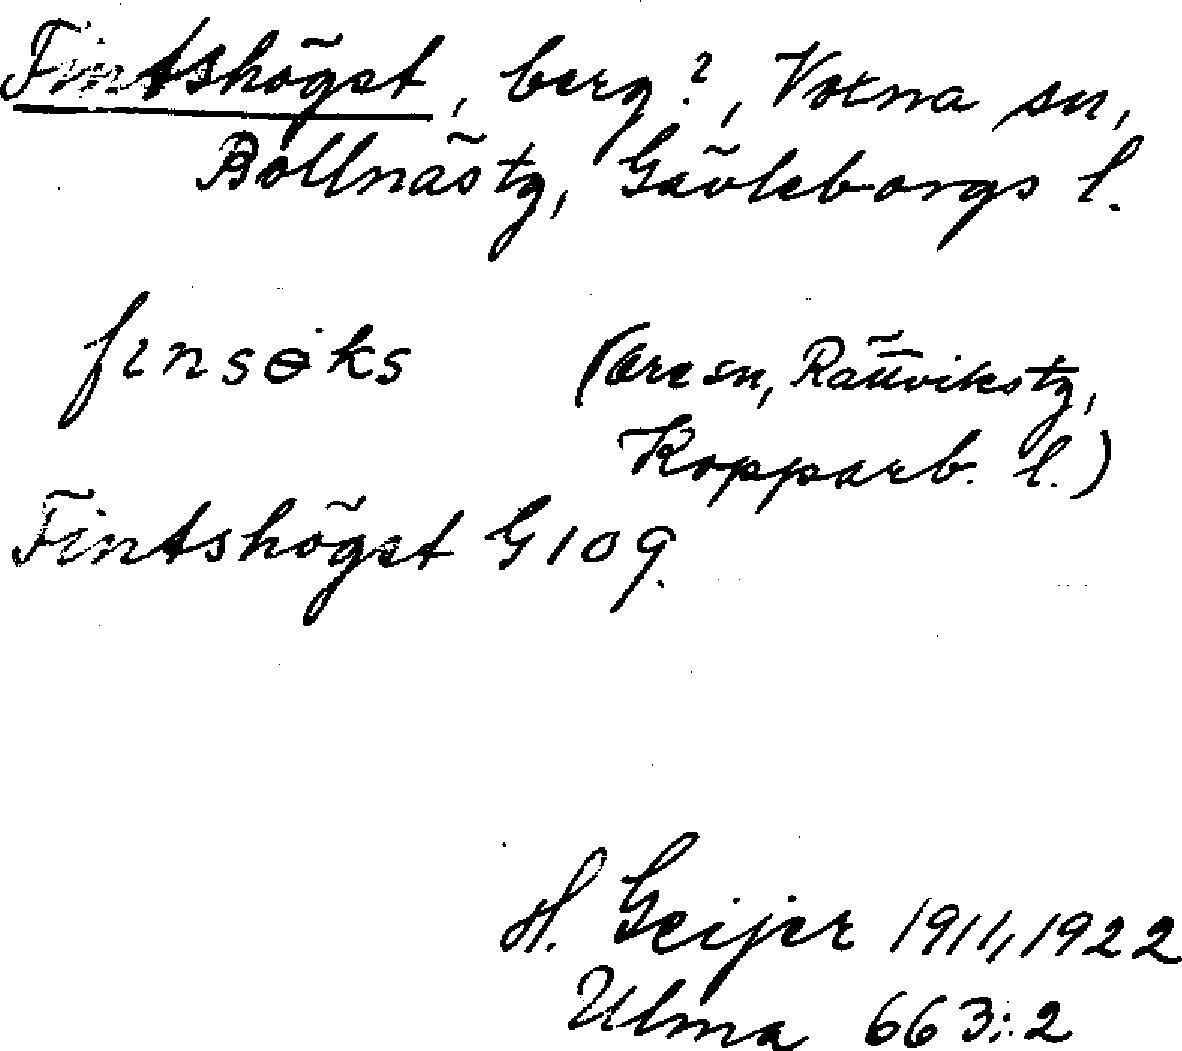 Fintshögst, berg?, Voxna sn,
Bollnäs tg, Gävleborgs l.
finsөks (Ore sn, Rättviks tg,
Kopparb. l.)
Fintshögst G 109.
H. Geijer 1911, 1922
Ulma 663:2